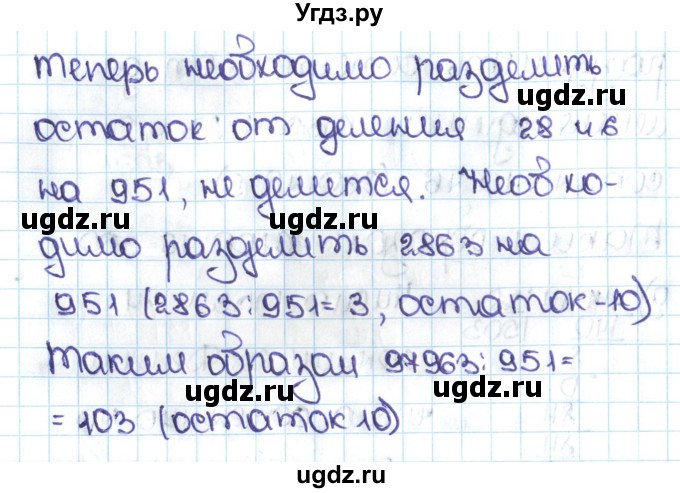 Угдз.ру
теперь необходимо разделить
ugdz.ru
остаток от деления 28 и 6
ugdz.ru
на 951, не делится. Необхо-
ugdz.ru
димо разделить 2863 на
ugdz.ru
951 (2863:951=3, остаток-10)
ugdz.ru
Таким образом 97963:951=
ugdz.ru
ugdz.ru
=103 (остаток 10)
ugdz.ru
ugdz.ru